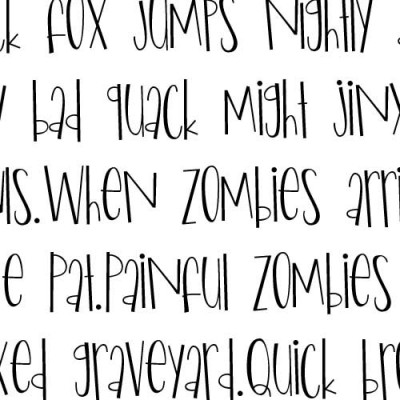 ck fox jumps nightly a
y bad quack might jinx
wls. When zombies arri
e pat. Painful zombies
xed graveyard. Quick br